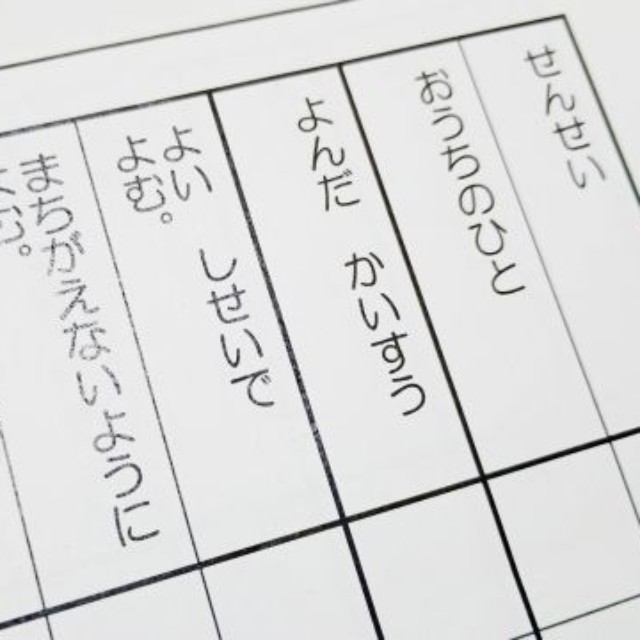 せんせい
おうちのひと
よんだ かいすう
よい しせいで
よむ。
まちがえないように
よむ。